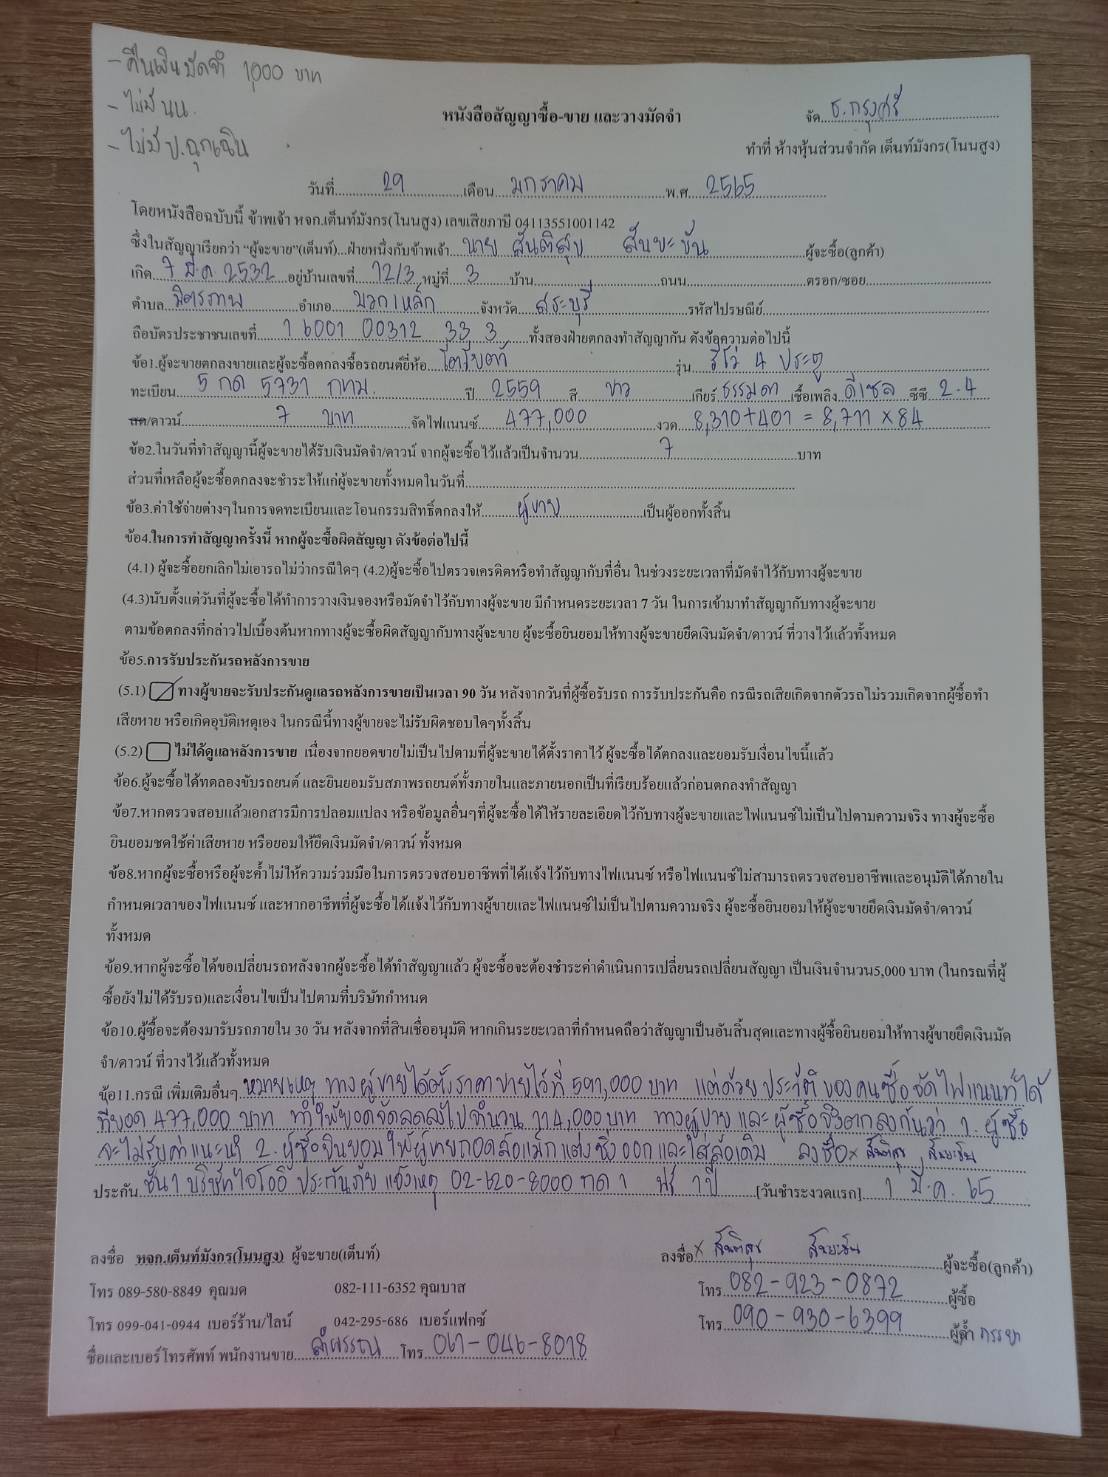 - คืนเงินมัดจำ 1,000 บาท
- ไม่มี นน.
- ไม่มี ป.ฉุกเฉิน
หนังสือสัญญาซื้อ-ขาย และวางมัดจำ
จัด ธ.กรุงศรี
ทำที่ ห้างหุ้นส่วนจำกัด เต็นท์มังกร(โนนสูง)
วันที่ 29 เดือน มกราคม พ.ศ. 2565
โดยหนังสือฉบับนี้ ข้าพเจ้า หจก.เต็นท์มังกร(โนนสูง) เลขเสียภาษี 04113551001142
ซึ่งในสัญญาเรียกว่า "ผู้จะขาย"(เต็นท์)...ฝ่ายหนึ่งกับข้าพเจ้า นาย สันติสุข สันยะขัน ผู้จะซื้อ(ลูกค้า)
เกิด 7 มี.ค. 2532 อยู่บ้านเลขที่ 12/3 หมู่ที่ 3 บ้าน ถนน ตรอก/ซอย
ตำบล มิตรภาพ อำเภอ มวกเหล็ก จังหวัด สระบุรี รหัสไปรษณีย์
ถือบัตรประชาชนเลขที่ 1 6001 00312 33 3 ทั้งสองฝ่ายตกลงทำสัญญากัน ดังข้อความต่อไปนี้
ข้อ1.ผู้จะขายตกลงขายและผู้จะซื้อตกลงซื้อรถยนต์ยี่ห้อ โตโยต้า รุ่น รีโว่ 4 ประตู
ทะเบียน 5 กด 5731 กทม. ปี 2559 สี ขาว เกียร์ ธรรมดา เชื้อเพลิง ดีเซล ซีซี 2.4
สด/ดาวน์ 7 บาท จัดไฟแนนซ์ 477,000 งวด 8,310+401 = 8,711 x 84
ข้อ2.ในวันที่ทำสัญญานี้ผู้จะขายได้รับเงินมัดจำ/ดาวน์ จากผู้จะซื้อไว้แล้วเป็นจำนวน 7 บาท
ส่วนที่เหลือผู้จะซื้อตกลงจะชำระให้แก่ผู้จะขายทั้งหมดในวันที่
ข้อ3.ค่าใช้จ่ายต่างๆในการจดทะเบียนและโอนกรรมสิทธิ์ตกลงให้ ผู้ขาย เป็นผู้ออกทั้งสิ้น
ข้อ4.ในการทำสัญญาครั้งนี้ หากผู้จะซื้อผิดสัญญา ดังข้อต่อไปนี้
(4.1) ผู้จะซื้อยกเลิกไม่เอารถไม่ว่ากรณีใดๆ (4.2)ผู้จะซื้อไปตรวจเครดิตหรือทำสัญญากับที่อื่น ในช่วงระยะเวลาที่มัดจำไว้กับทางผู้จะขาย
(4.3)นับตั้งแต่วันที่ผู้จะซื้อได้ทำการวางเงินจองหรือมัดจำไว้กับทางผู้จะขาย มีกำหนดระยะเวลา 7 วัน ในการเข้ามาทำสัญญากับทางผู้จะขาย
ตามข้อตกลงที่กล่าวไปเบื้องต้นหากทางผู้จะซื้อผิดสัญญากับทางผู้จะขาย ผู้จะซื้อยินยอมให้ทางผู้จะขายยึดเงินมัดจำ/ดาวน์ ที่วางไว้แล้วทั้งหมด
ข้อ5.การรับประกันรถหลังการขาย
(5.1) ทางผู้ขายจะรับประกันดูแลรถหลังการขายเป็นเวลา 90 วัน หลังจากวันที่ผู้ซื้อรับรถ การรับประกันคือ กรณีรถเสียเกิดจากตัวรถไม่รวมเกิดจากผู้ซื้อทำ
เสียหาย หรือเกิดอุบัติเหตุเอง ในกรณีนี้ทางผู้ขายจะไม่รับผิดชอบใดๆทั้งสิ้น
(5.2) ไม่ได้ดูแลหลังการขาย เนื่องจากยอดขายไม่เป็นไปตามที่ผู้จะขายได้ตั้งราคาไว้ ผู้จะซื้อได้ตกลงและยอมรับเงื่อนไขนี้แล้ว
ข้อ6.ผู้จะซื้อได้ทดลองขับรถยนต์ และยินยอมรับสภาพรถยนต์ทั้งภายในและภายนอกเป็นที่เรียบร้อยแล้วก่อนตกลงทำสัญญา
ข้อ7.หากตรวจสอบแล้วเอกสารมีการปลอมแปลง หรือข้อมูลอื่นๆที่ผู้จะซื้อได้ให้รายละเอียดไว้กับทางผู้จะขายและไฟแนนซ์ไม่เป็นไปตามความจริง ทางผู้จะซื้อ
ยินยอมชดใช้ค่าเสียหาย หรือยอมให้ยึดเงินมัดจำ/ดาวน์ ทั้งหมด
ข้อ8.หากผู้จะซื้อหรือผู้จะค้ำไม่ให้ความร่วมมือในการตรวจสอบอาชีพที่ได้แจ้งไว้กับทางไฟแนนซ์ หรือไฟแนนซ์ไม่สามารถตรวจสอบอาชีพและอนุมัติได้ภายใน
กำหนดเวลาของไฟแนนซ์ และหากอาชีพที่ผู้จะซื้อได้แจ้งไว้กับทางผู้ขายและไฟแนนซ์ไม่เป็นไปตามความจริง ผู้จะซื้อยินยอมให้ผู้จะขายยึดเงินมัดจำ/ดาวน์
ทั้งหมด
ข้อ9.หากผู้จะซื้อได้ขอเปลี่ยนรถหลังจากผู้จะซื้อได้ทำสัญญาแล้ว ผู้จะซื้อจะต้องชำระค่าดำเนินการเปลี่ยนรถเปลี่ยนสัญญา เป็นเงินจำนวน5,000 บาท (ในกรณที่ผู้
ซื้อยังไม่ได้รับรถ)และเงื่อนไขเป็นไปตามที่บริษัทกำหนด
ข้อ10.ผู้ซื้อจะต้องมารับรถภายใน 30 วัน หลังจากที่สินเชื่ออนุมัติ หากเกินระยะเวลาที่กำหนดถือว่าสัญญาเป็นอันสิ้นสุดและทางผู้ซื้อยินยอมให้ทางผู้ขายยึดเงินมัด
จำ/ดาวน์ ที่วางไว้แล้วทั้งหมด
ข้อ11.กรณี เพิ่มเติมอื่นๆ หมายเหตุ ทางผู้ขายได้ตั้งราคาขายไว้ที่ 591,000 บาท แต่ด้วยประวัติของคนซื้อจัดไฟแนนท์ได้
ที่ยอด 477,000 บาท ทำให้ยอดจัดลดลงไปจำนวน 114,000 บาท ทางผู้ขายและผู้ซื้อจึงตกลงกันว่า 1. ผู้ซื้อ
จะไม่รับค่าแนะนำ 2. ผู้ซื้อยินยอมให้ผู้ขายถอดล้อแม็กแต่งซิ่งออกและใส่ล้อเดิม ลงชื่อx สันติสุข สันยะขัน
ประกัน ชั้น 1 บริษัทไอโออิ ประกันภัย แจ้งเหตุ 02-620-8000 กด 1 ฟรี 1 ปี [วันชำระงวดแรก] 1 มี.ค. 65
ลงชื่อ หจก.เต็นท์มังกร(โนนสูง) ผู้จะขาย(เต็นท์)
ลงชื่อ x สันติสุข สันยะขัน ผู้จะซื้อ(ลูกค้า)
โทร 089-580-8849 คุณมด 082-111-6352 คุณบาส
โทร 082-923-0872 ผู้ซื้อ
โทร 099-041-0944 เบอร์ร้าน/ไลน์ 042-295-686 เบอร์แฟกซ์
โทร 090-930-6399 ผู้ค้ำ ภรรยา
ชื่อและเบอร์โทรศัพท์ พนักงานขาย ลำพรรณ โทร 061-046-8018